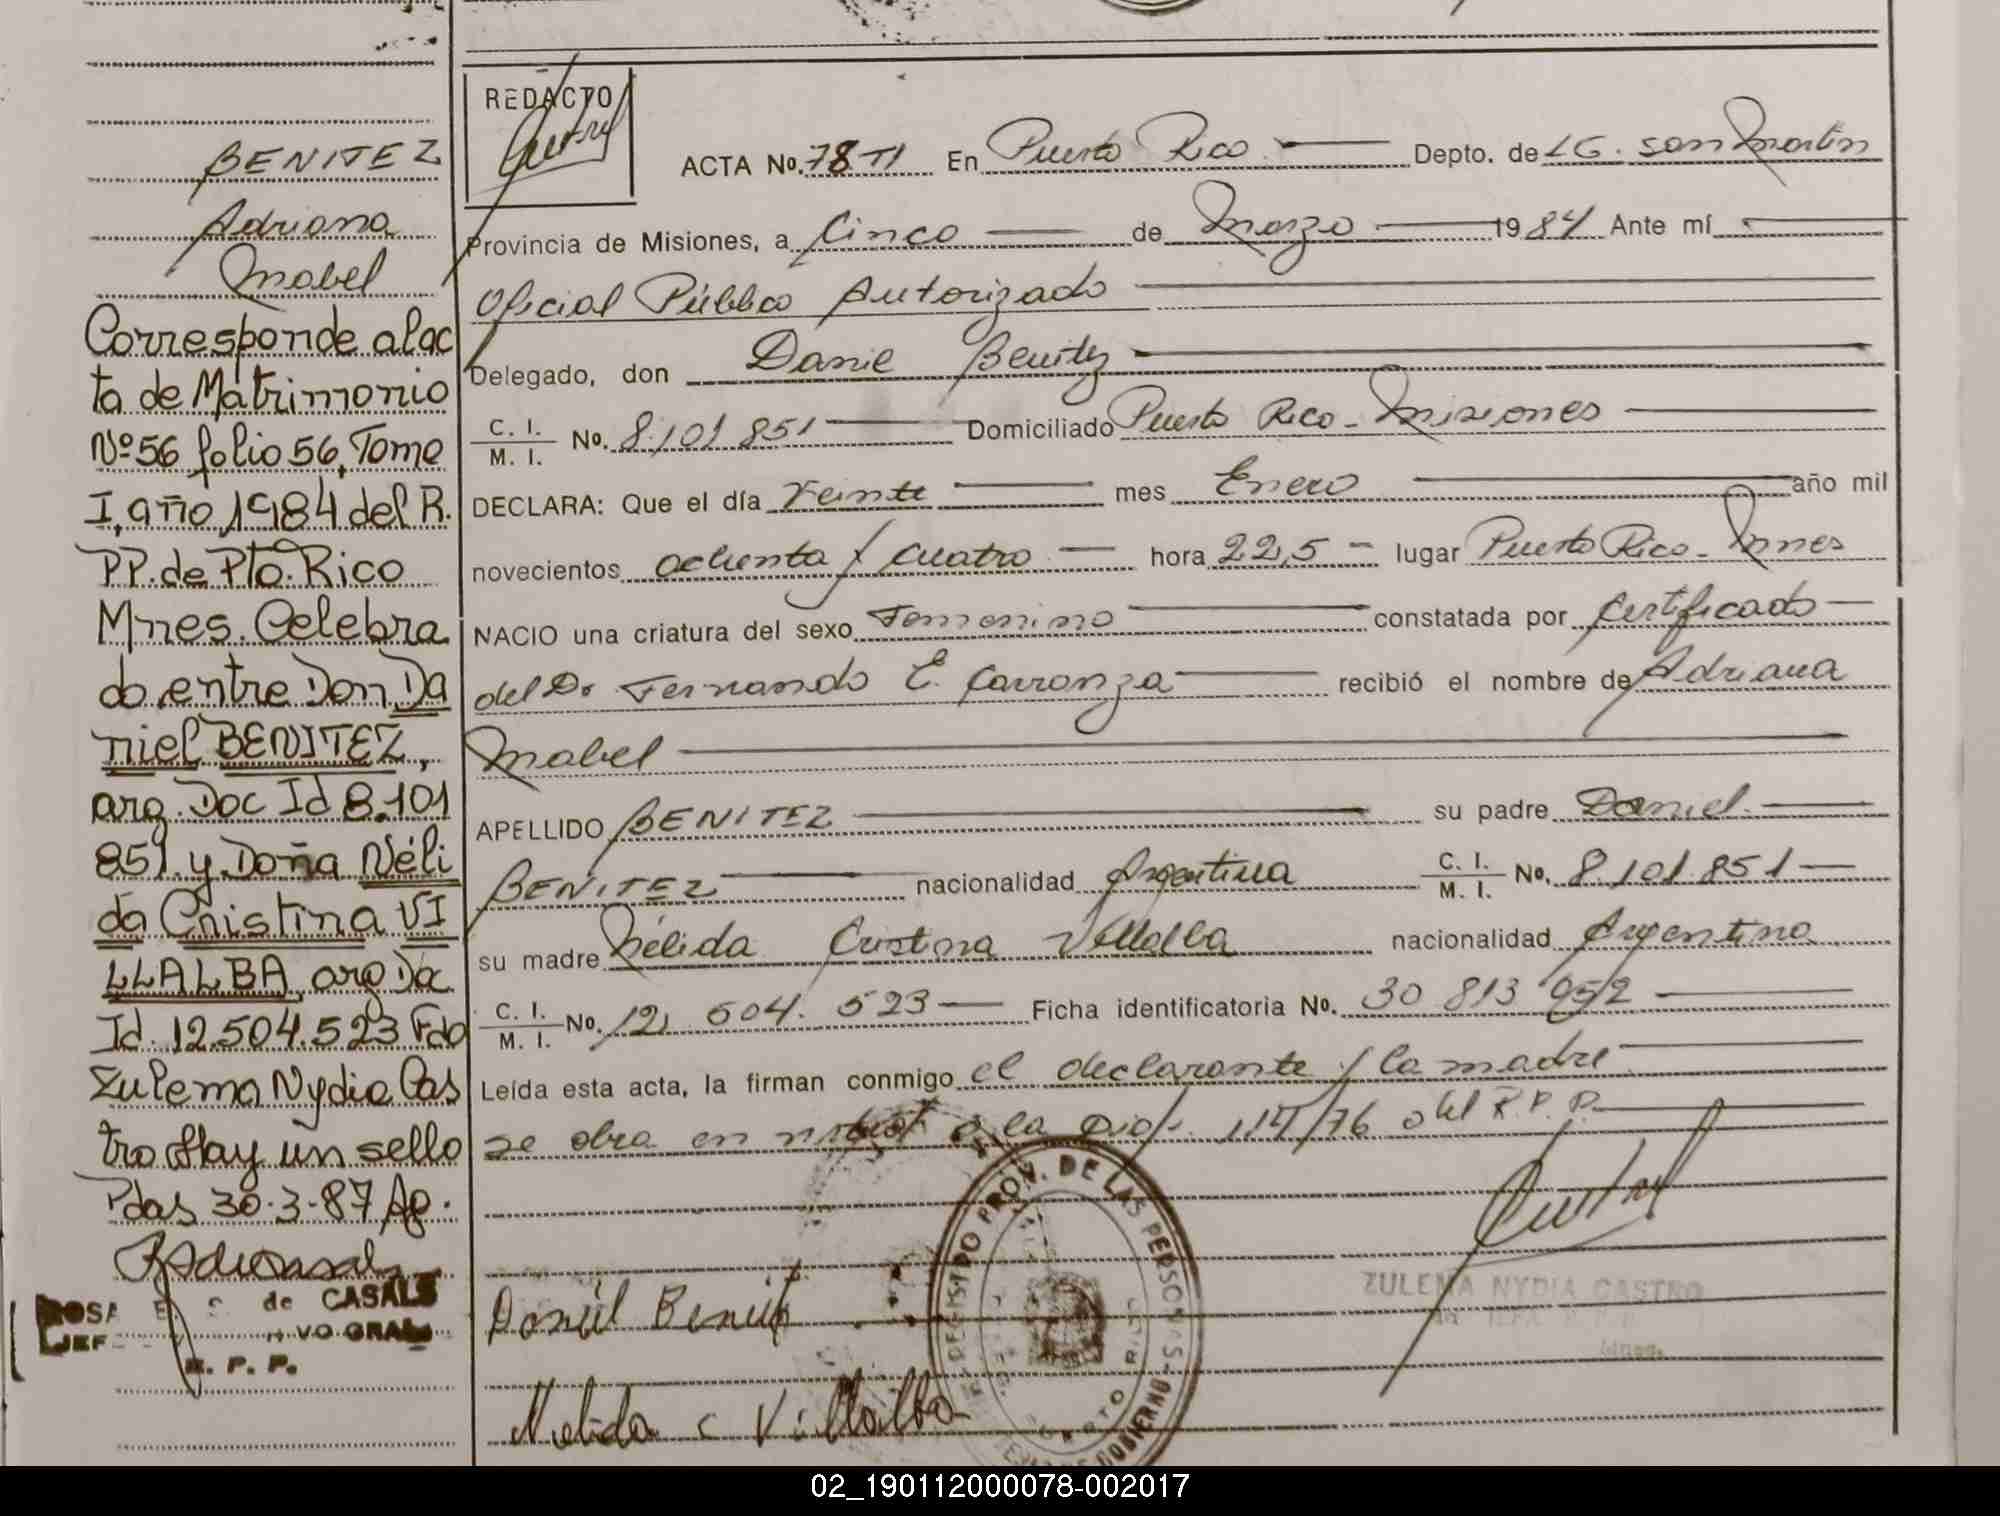 BENITEZ
Adriana
Mabel
Corresponde alac
ta de Matrimonio
Nº 56 folio 56, Tomo
I, año 1984 del R.
PP. de Pto. Rico
Mnes. Celebra
do entre Don Da
niel BENITEZ,
arg. Doc Id 8.101
851 y Doña Néli
da Cristina VI
LLALBA, arg Dc
Id. 12.504.523 Fdo
Zulema Nydia Cas
tro Hay un sello
Pdas 30-3-87
ROSA E. de CASALS
JEF VO GRAL
R. P. P.
REDACTO
ACTA No. 78 TI En Puerto Rico Depto. de LG. San Martin
Provincia de Misiones, a Cinco de Marzo 1984 Ante mí
Oficial Público Autorizado
Delegado, don Danie Benitez
C. I.
M. I. No. 8.101 851 Domiciliado Puerto Rico - Misiones
DECLARA: Que el día Veinte mes Enero año mil
novecientos ochenta y cuatro hora 22,5 lugar Puerto Rico - Mnes
NACIO una criatura del sexo Femenino constatada por Certificado
del Dr Fernando E. Carranza recibió el nombre de Adriana
Mabel
APELLIDO BENITEZ su padre Daniel
BENITEZ nacionalidad Argentina C. I.
M. I. No. 8.101.851
su madre Nélida Cristina Villalba nacionalidad Argentina
C. I.
M. I. No. 12 504. 523 Ficha identificatoria No. 30 813 952
Leída esta acta, la firman conmigo el declarante y la madre
se obra en a la 114/76 del R.P.P.
REGISTRO PROV. DE LAS PERSONAS
PUERTO RICO
GOBIERNO
ZULEMA NYDIA CASTRO
Daniel Benit
Nelida C Villalba
02_190112000078-002017